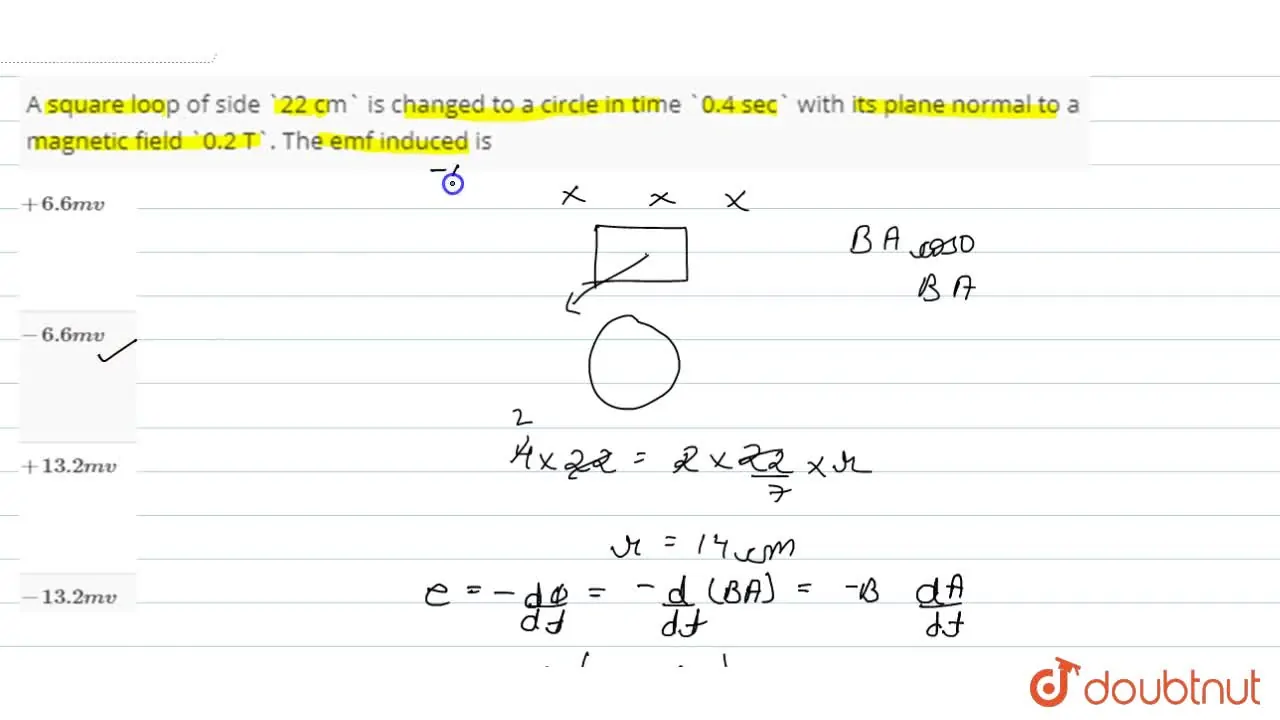 A square loop of side `22 cm` is changed to a circle in time `0.4 sec` with its plane normal to a
magnetic field `0.2 T`. The emf induced is
+6.6mv
x x x
B A cos0
B A
-6.6mv
2
4 x 22 = 2 x 22/7 x r
+13.2mv
r = 14 cm
-13.2mv
e = -dϕ/dt = -d/dt (BA) = -B dA/dt
doubtnut